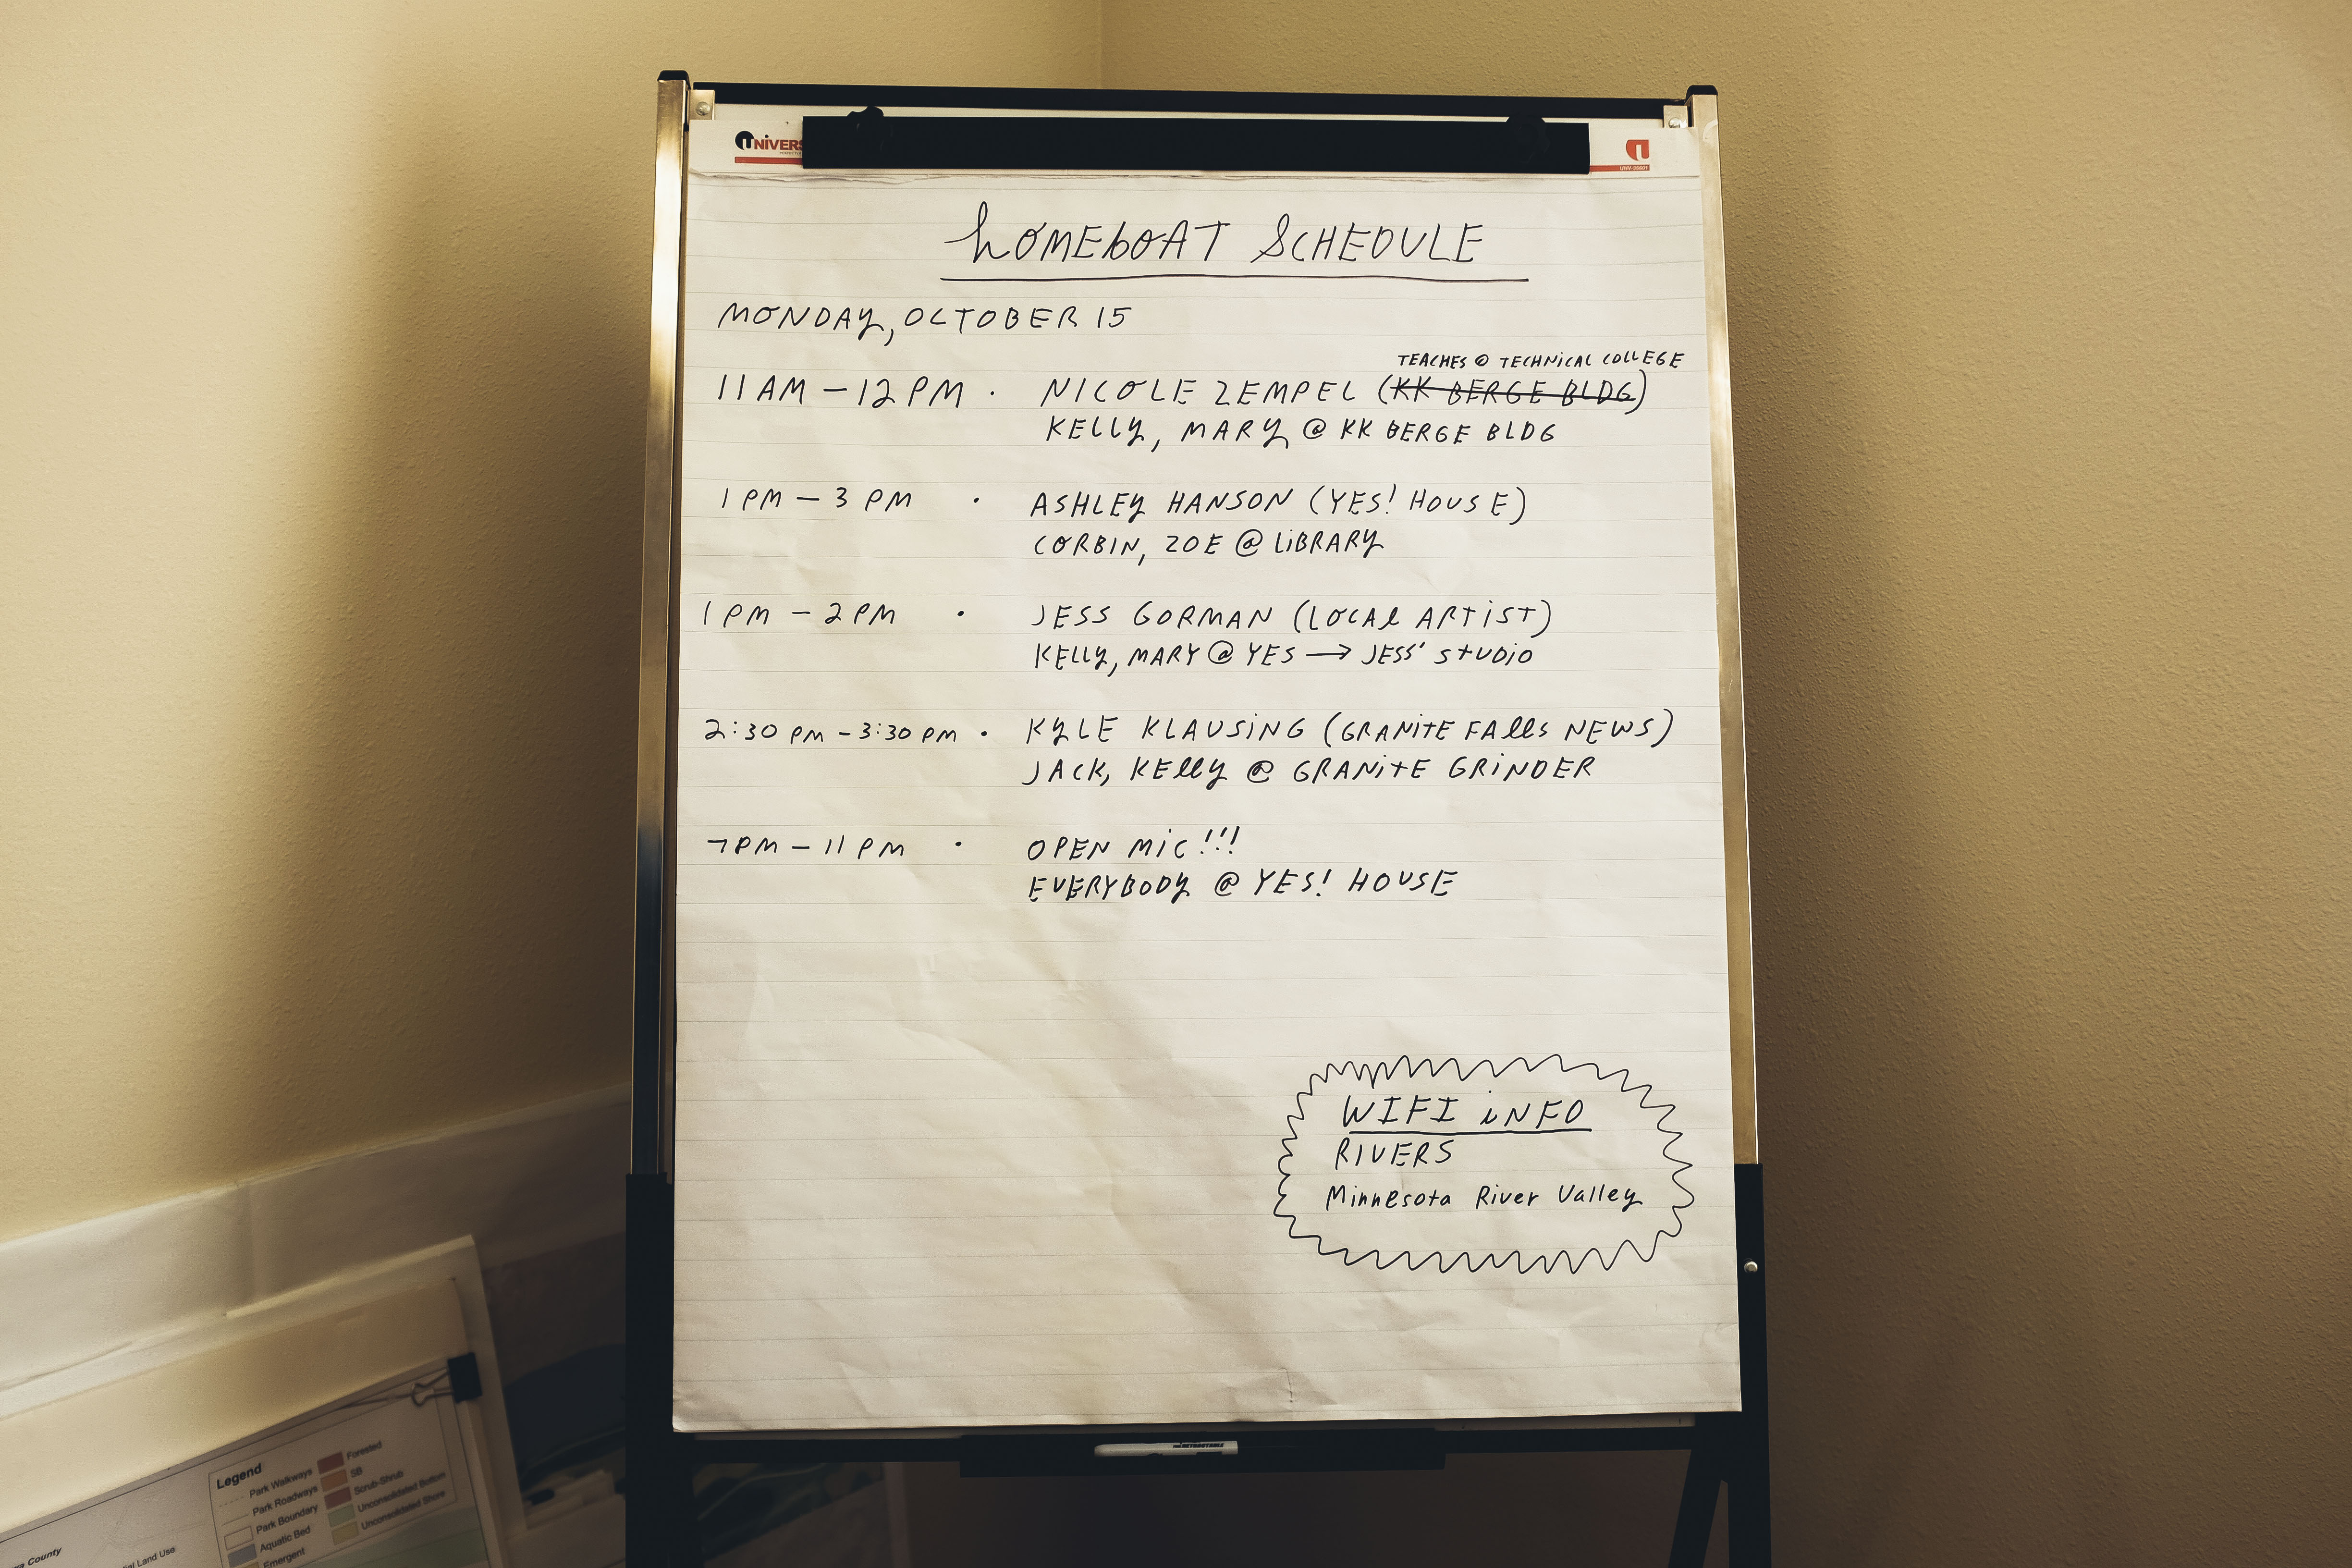 UNIVERS
UNV-35601
HOMEBOAT SCHEDULE
MONDAY, OCTOBER 15
TEACHES @ TECHNICAL COLLEGE
11 AM – 12 PM · NICOLE ZEMPEL (KK BERGE BLDG)
KELLY, MARY @ KK BERGE BLDG
1 PM – 3 PM · ASHLEY HANSON (YES! HOUSE)
CORBIN, ZOE @ LIBRARY
1 PM – 2 PM · JESS GORMAN (LOCAL ARTIST)
KELLY, MARY @ YES → JESS' STUDIO
2:30 PM – 3:30 PM · KYLE KLAUSING (GRANITE FALLS NEWS)
JACK, KELLY @ GRANITE GRINDER
7 PM – 11 PM · OPEN MIC!!!
EVERYBODY @ YES! HOUSE
WIFI INFO
RIVERS
Minnesota River Valley
Legend
Park Walkways
Park Roadways
Park Boundary
Aquatic Bed
Emergent
Forested
SB
Scrub-Shrub
Unconsolidated Bottom
Unconsolidated Shore
County
Land Use